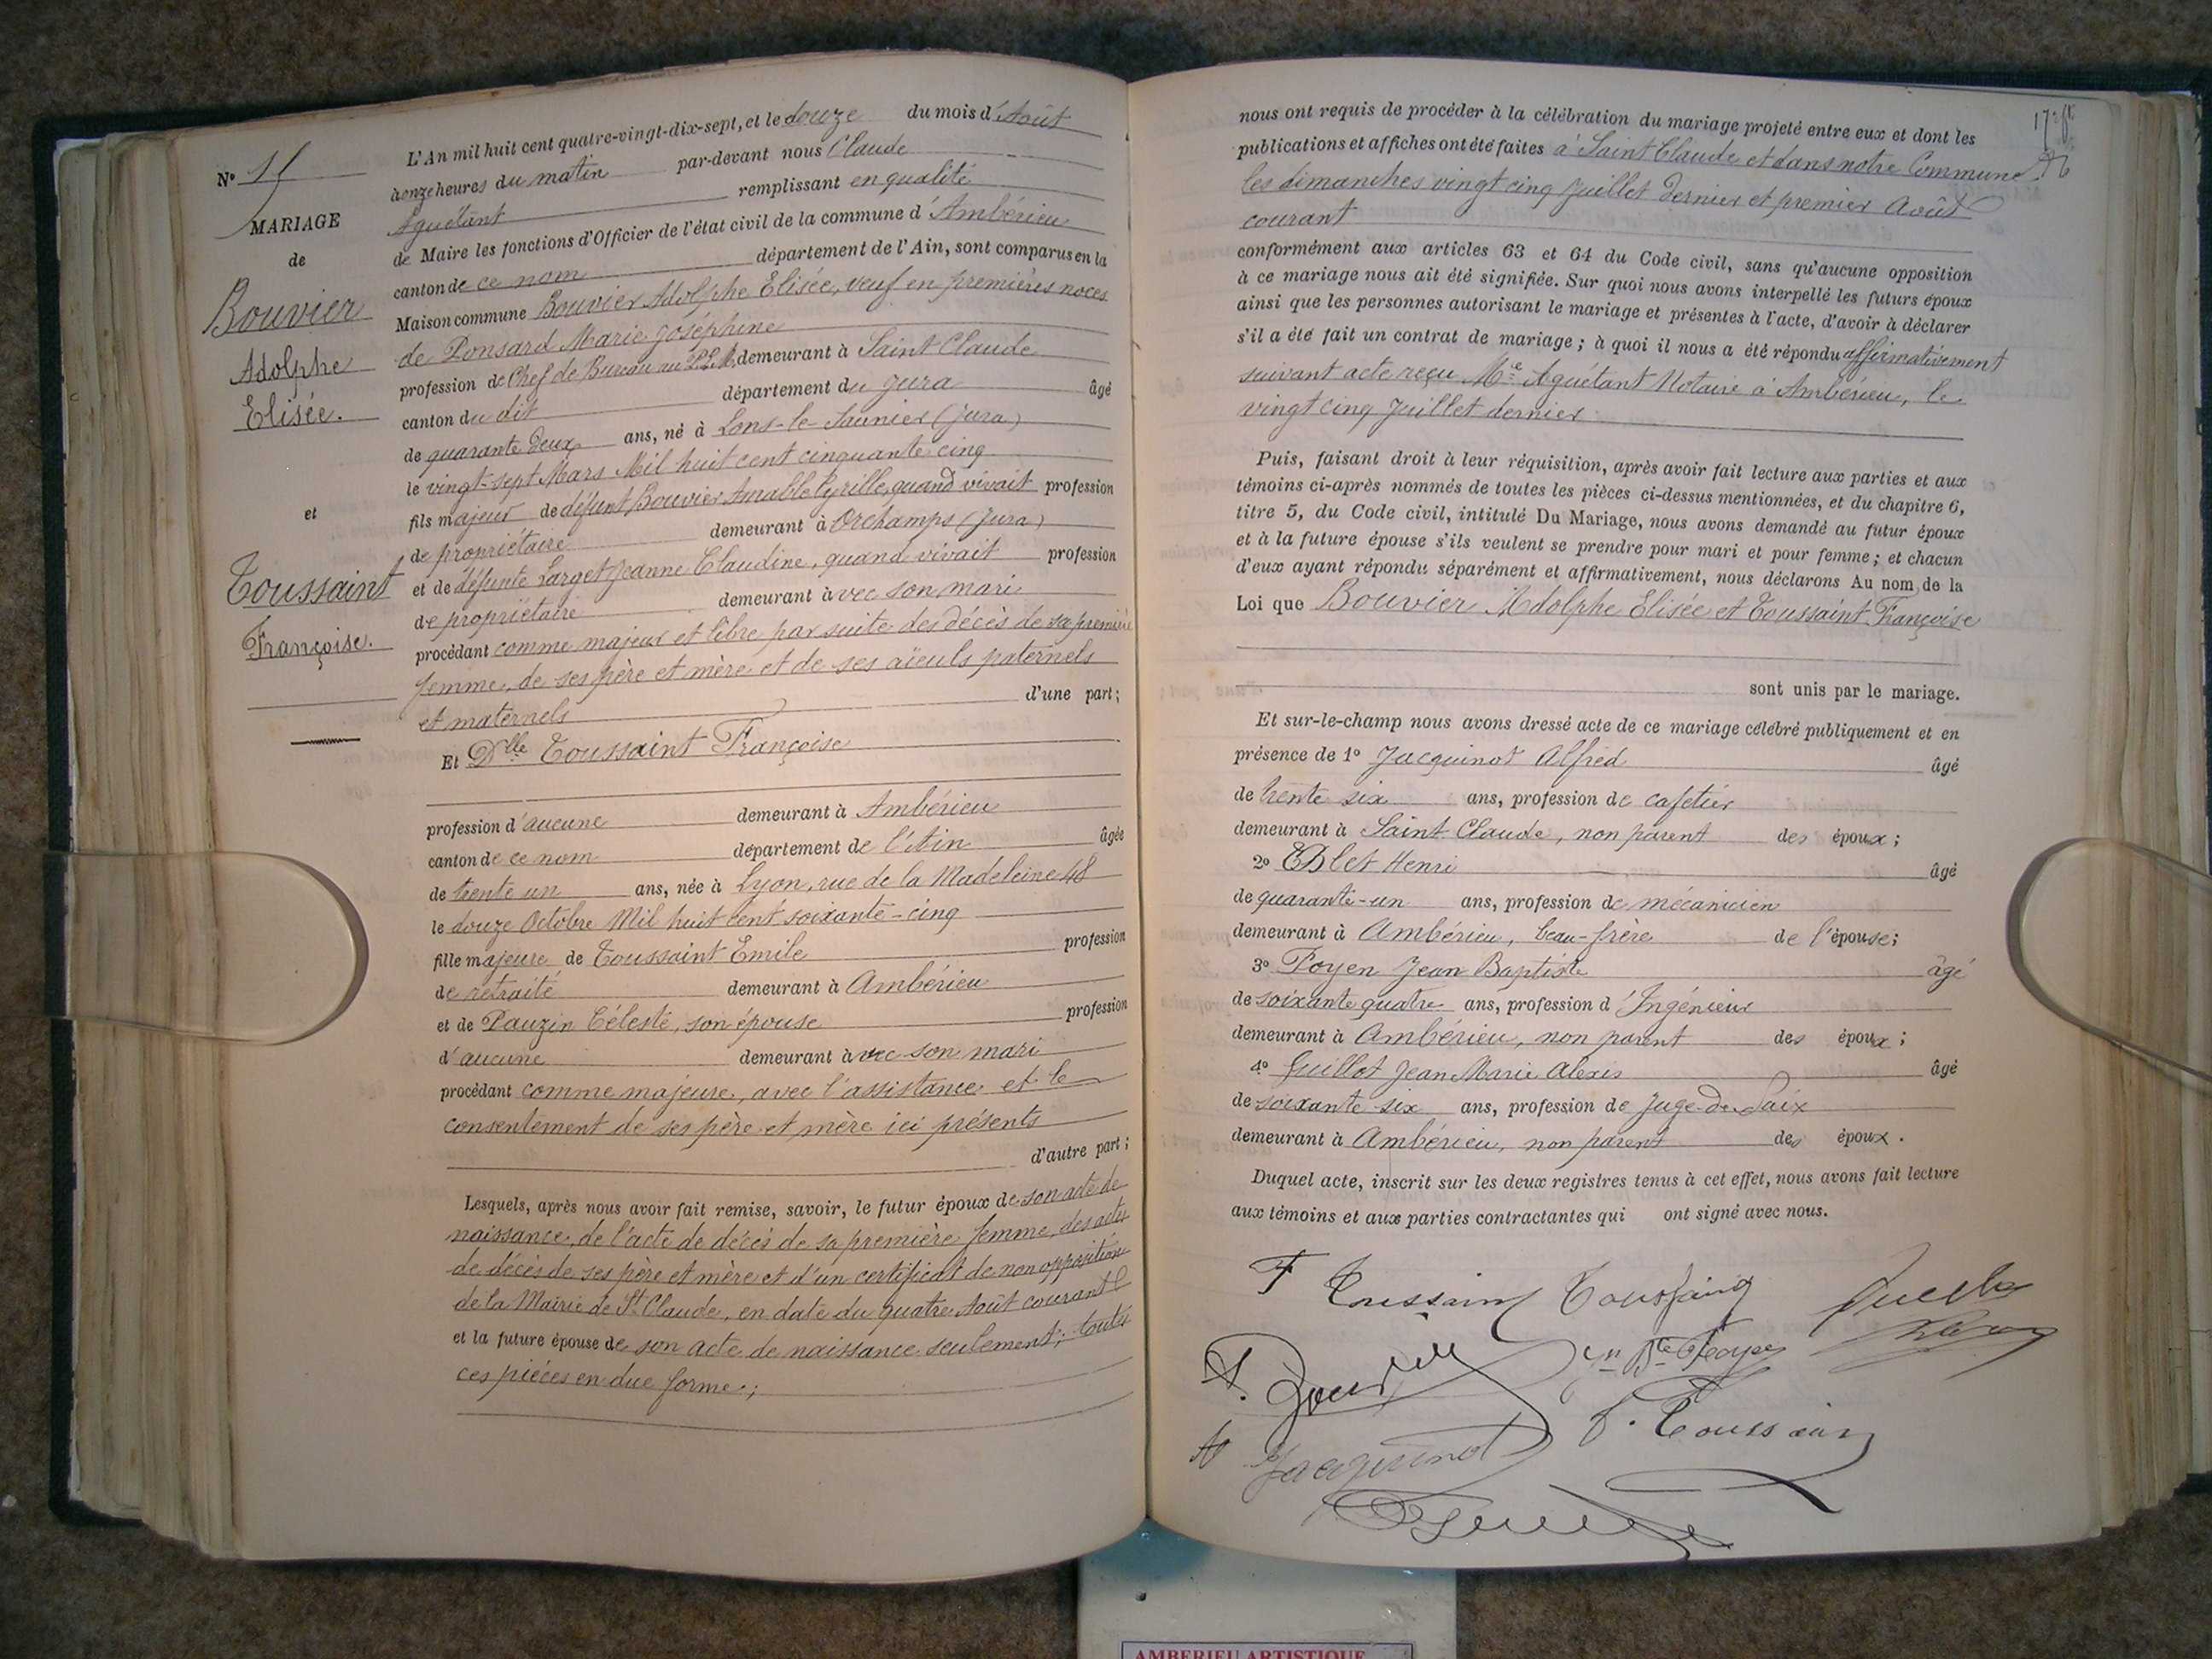 N° 15
MARIAGE
de
Bouvier
Adolphe
Elisée.
et
Toussaint
Françoise.
L'An mil huit cent quatre-vingt-dix-sept, et le douze du mois d'Août
à onze heures du matin par-devant nous Claude
Aguétant remplissant en qualité
de Maire les fonctions d'Officier de l'état civil de la commune d'Ambérieu
canton de ce nom département de l'Ain, sont comparus en la
Maison commune Bouvier Adolphe Elisée, veuf en premières noces
de Ponsard Marie Joséphine
profession de Chef de Bureau au P.L.M. demeurant à Saint Claude
canton du dit département du Jura âgé
de quarante deux ans, né à Lons-le-Saunier (Jura)
le vingt-sept Mars Mil huit cent cinquante cinq
fils majeur de défunt Bouvier Amable Cyrille, quand vivait profession
de propriétaire demeurant à Orchamps (Jura)
et de défunte Larget Jeanne Claudine, quand vivait profession
de propriétaire demeurant avec son mari
procédant comme majeur et libre par suite des décès de sa première
femme, de ses père et mère et de ses aïeuls paternels
et maternels d'une part;
Et Dlle Toussaint Françoise
profession d'aucune demeurant à Ambérieu
canton de ce nom département de l'Ain âgée
de trente un ans, née à Lyon, rue de la Madeleine 48
le douze Octobre Mil huit cent soixante-cinq
fille majeure de Toussaint Emile profession
de retraité demeurant à Ambérieu
et de Pauzin Céleste, son épouse profession
d'aucune demeurant avec son mari
procédant comme majeure, avec l'assistance et le
consentement de ses père et mère ici présents
d'autre part;
Lesquels, après nous avoir fait remise, savoir, le futur époux de son acte de
naissance, de l'acte de décès de sa première femme, des actes
de décès de ses père et mère et d'un certificat de non opposition
de la Mairie de St Claude, en date du quatre Août courant
et la future épouse de son acte de naissance seulement; toutes
ces pièces en due forme;
nous ont requis de procéder à la célébration du mariage projeté entre eux et dont les
publications et affiches ont été faites à Saint Claude et dans notre Commune
les dimanches vingt cinq Juillet dernier et premier Août
courant
conformément aux articles 63 et 64 du Code civil, sans qu'aucune opposition
à ce mariage nous ait été signifiée. Sur quoi nous avons interpellé les futurs époux
ainsi que les personnes autorisant le mariage et présentes à l'acte, d'avoir à déclarer
s'il a été fait un contrat de mariage; à quoi il nous a été répondu affirmativement
suivant acte reçu Me Aguétant Notaire à Ambérieu, le
vingt cinq Juillet dernier
Puis, faisant droit à leur réquisition, après avoir fait lecture aux parties et aux
témoins ci-après nommés de toutes les pièces ci-dessus mentionnées, et du chapitre 6,
titre 5, du Code civil, intitulé Du Mariage, nous avons demandé au futur époux
et à la future épouse s'ils veulent se prendre pour mari et pour femme; et chacun
d'eux ayant répondu séparément et affirmativement, nous déclarons Au nom de la
Loi que Bouvier Adolphe Elisée et Toussaint Françoise
sont unis par le mariage.
Et sur-le-champ nous avons dressé acte de ce mariage célébré publiquement et en
présence de 1° Jacquinot Alfred âgé
de trente six ans, profession de cafetier
demeurant à Saint Claude, non parent des époux;
2° Henri âgé
de quarante-un ans, profession de mécanicien
demeurant à Ambérieu, beau-frère de l'épouse;
3° Poyen Jean Baptiste âgé
de soixante quatre ans, profession d'Ingénieur
demeurant à Ambérieu, non parent des époux;
4° Guillot Jean Marie Alexis âgé
de soixante-six ans, profession de Juge de Paix
demeurant à Ambérieu, non parent des époux.
Duquel acte, inscrit sur les deux registres tenus à cet effet, nous avons fait lecture
aux témoins et aux parties contractantes qui ont signé avec nous.
F Toussaint Toussaint
Jn Bte Poyen
Jacquinot
C. Toussaint
AMBERIEU ARTISTIQUE